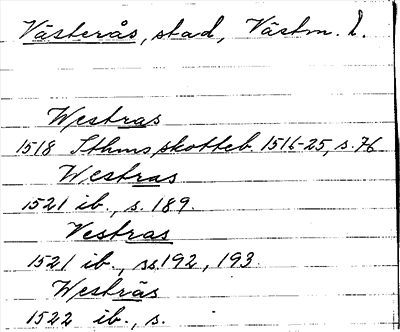 Västerås, stad, Västm. l.
Westras
1518 Sthms skotteb. 1516-25, s. 76
Westras
1521 ib., s. 189.
Vestras
1521 ib., ss. 192, 193.
Westrås
1522 ib., s.